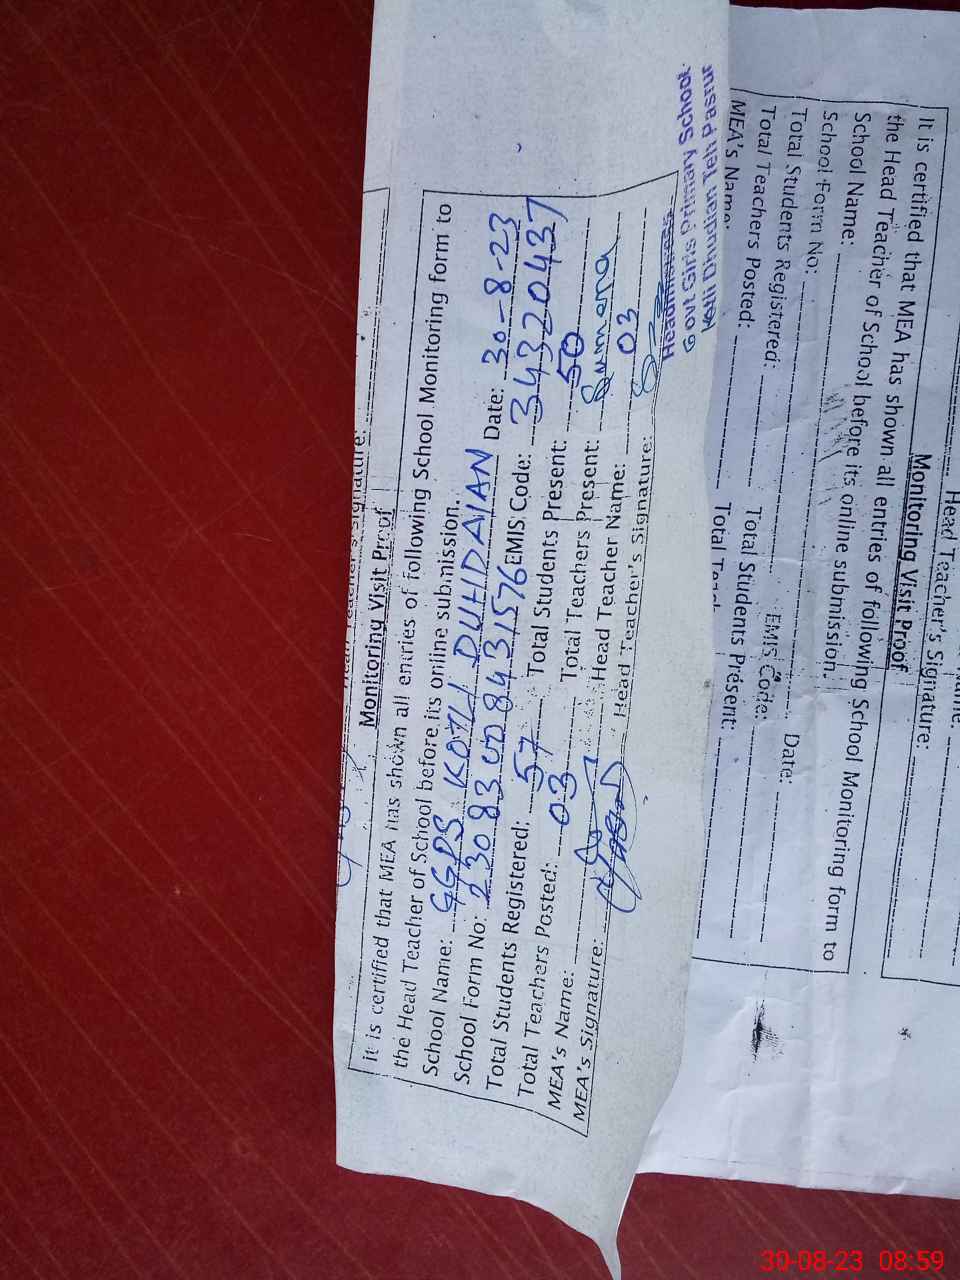 Head Teacher's Signature:
Monitoring Visit Proof
It is certified that MEA has shown all entries of following School Monitoring form to
the Head Teacher of School before its online submission.
School Name: GGPS KOTLI DUHDAIAN Date: 30-8-23
School Form No: EMIS Code: 34320437
Total Students Registered: 57 Total Students Present: 50
Total Teachers Posted: 03 Total Teachers Present: 03
MEA's Name: Head Teacher Name: Summena
MEA's Signature: Head Teacher's Signature:
Headmistress
Govt. Girls Primary School
Teh Pasrur
Head Teacher's Signature:
Monitoring Visit Proof
It is certified that MEA has shown all entries of following School Monitoring form to
the Head Teacher of School before its online submission.
School Name: Date:
School Form No: EMIS Code:
Total Students Registered: Total Students Present:
Total Teachers Posted: Total
MEA's Name:
30-08-23 08:59